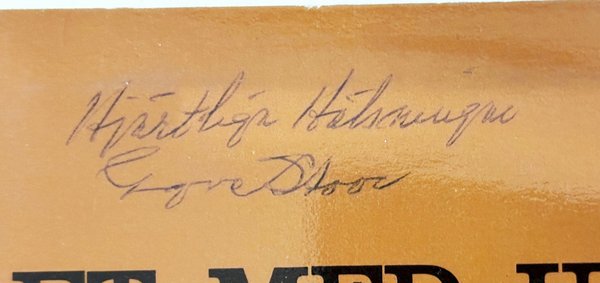 Hjärtliga Hälsningar
Stoor
ET MED